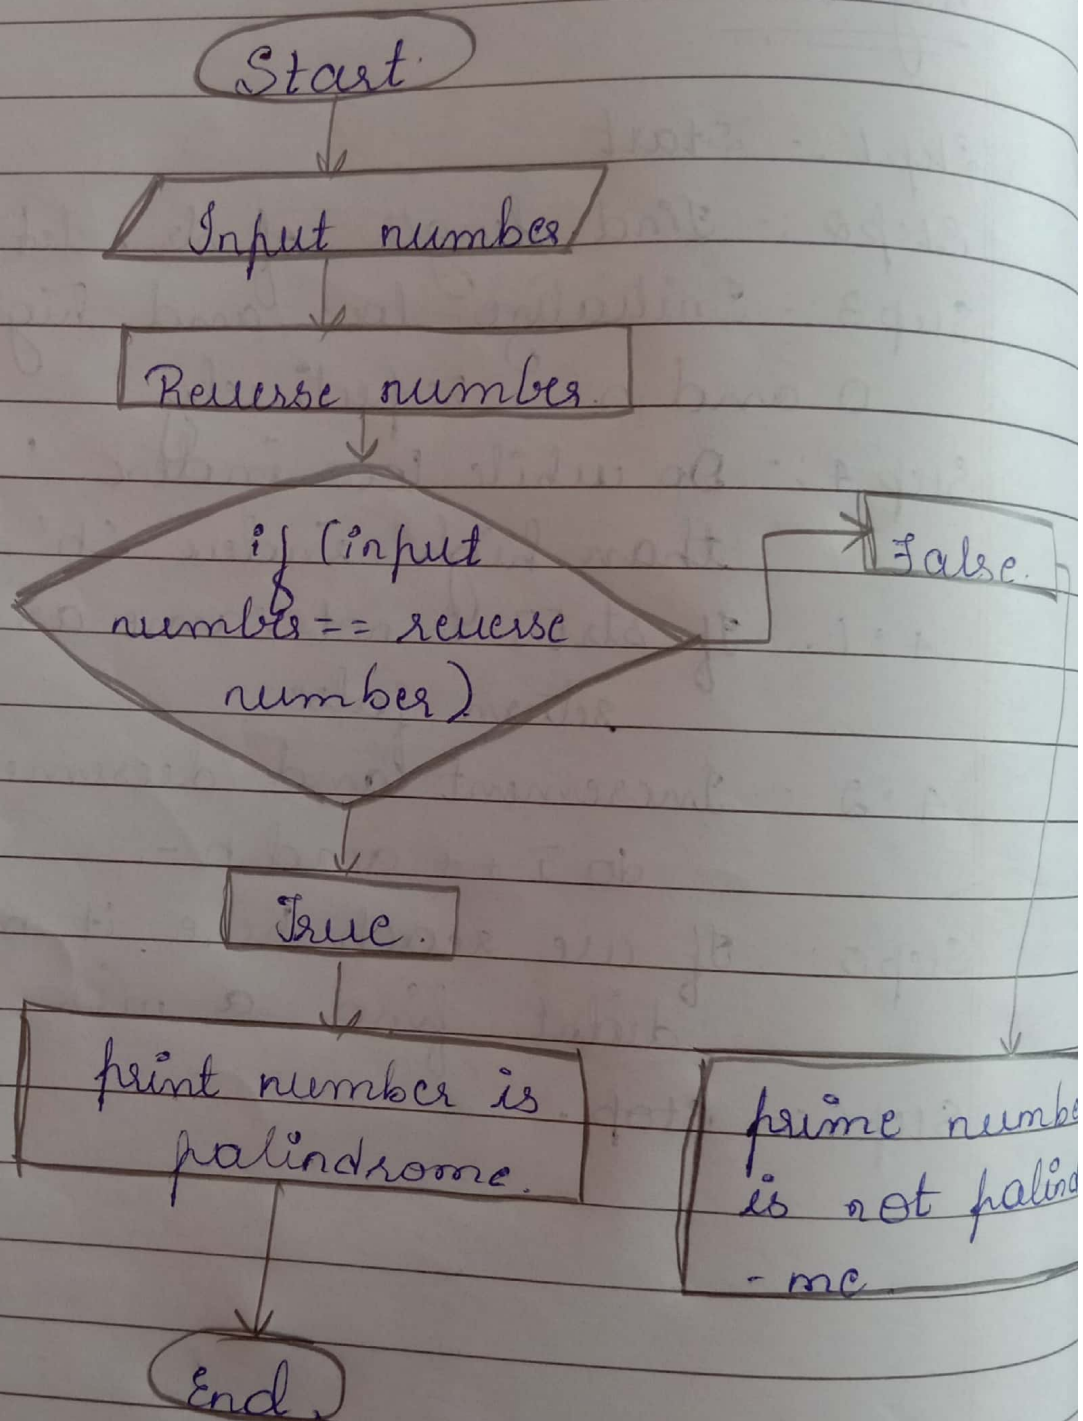 Start.
Input number
Reverse number.
if (input
number == reverse
number)
False.
True.
print number is
palindrome.
prime numbe
is not palind
- me.
End.